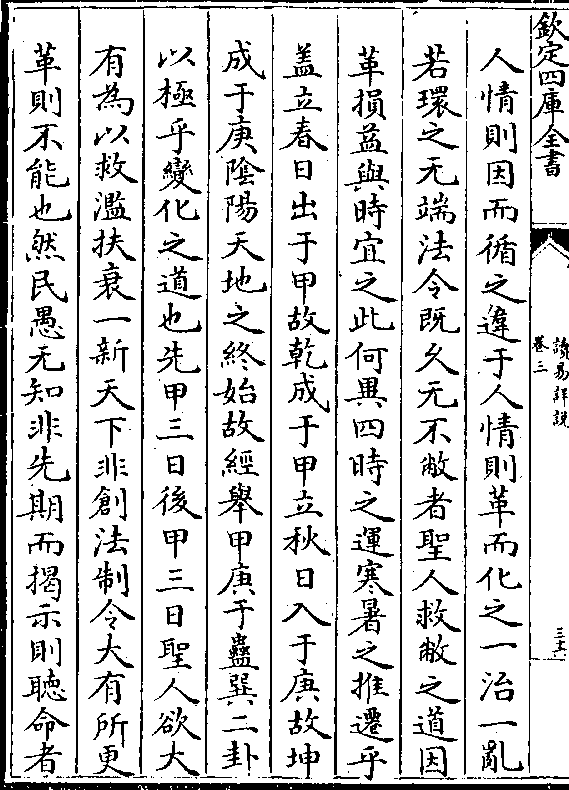 欽定四庫全書
讀易詳說
卷三
三六
人情則因而循之違于人情則革而化之一治一亂
若環之无端法令既久无不敝者聖人救敝之道因
革損益與時宜之此何異四時之運寒暑之推遷乎
盖立春日出于甲故乾成于甲立秋日入于庚故坤
成于庚陰陽天地之終始故經舉甲庚于蠱巽二卦
以極乎變化之道也先甲三日後甲三日聖人欲大
有為以救濫扶衰一新天下非創法制令大有所更
革則不能也然民愚无知非先期而揭示則聽命者